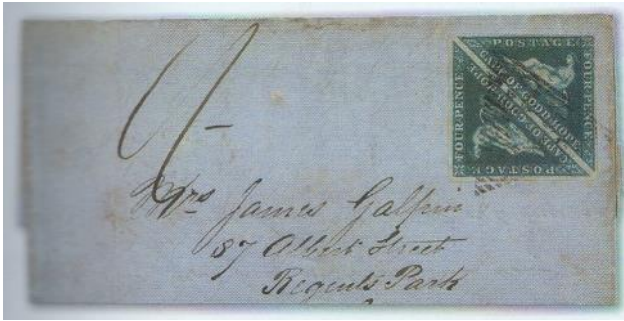 POSTAGE
FOUR-PENCE
CAPE OF GOOD HOPE
CAPE OF GOOD HOPE
FOUR-PENCE
POSTAGE
Mrs James Galpin
87 Albert Street
Regents Park